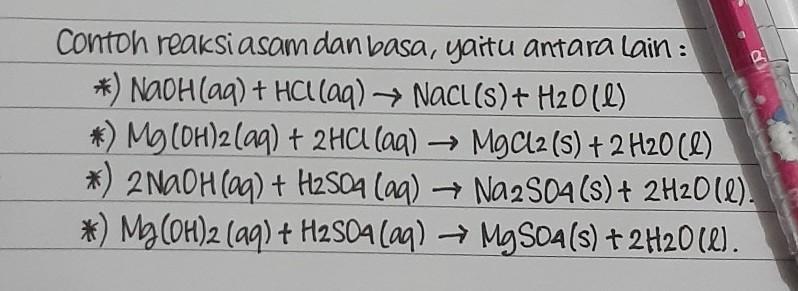 Contoh reaksi asam dan basa, yaitu antara lain :
*) NaOH(aq) + HCl(aq) → NaCl(s) + H2O(l)
*) Mg(OH)2(aq) + 2HCl(aq) → MgCl2(s) + 2H2O(l)
*) 2NaOH(aq) + H2SO4(aq) → Na2SO4(s) + 2H2O(l).
*) Mg(OH)2(aq) + H2SO4(aq) → MgSO4(s) + 2H2O(l).